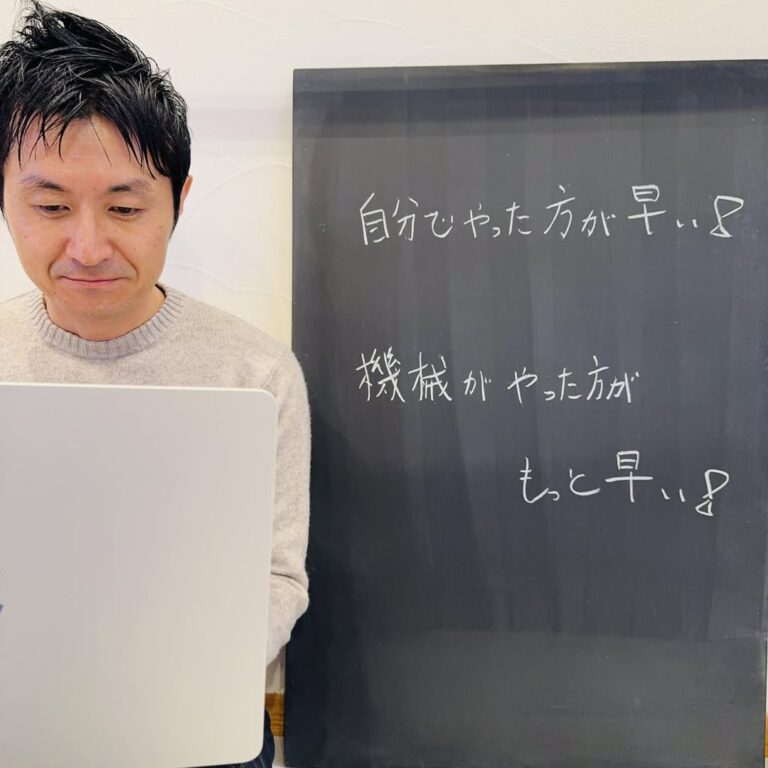 自分でやった方が早い!
機械がやった方が
もっと早い!